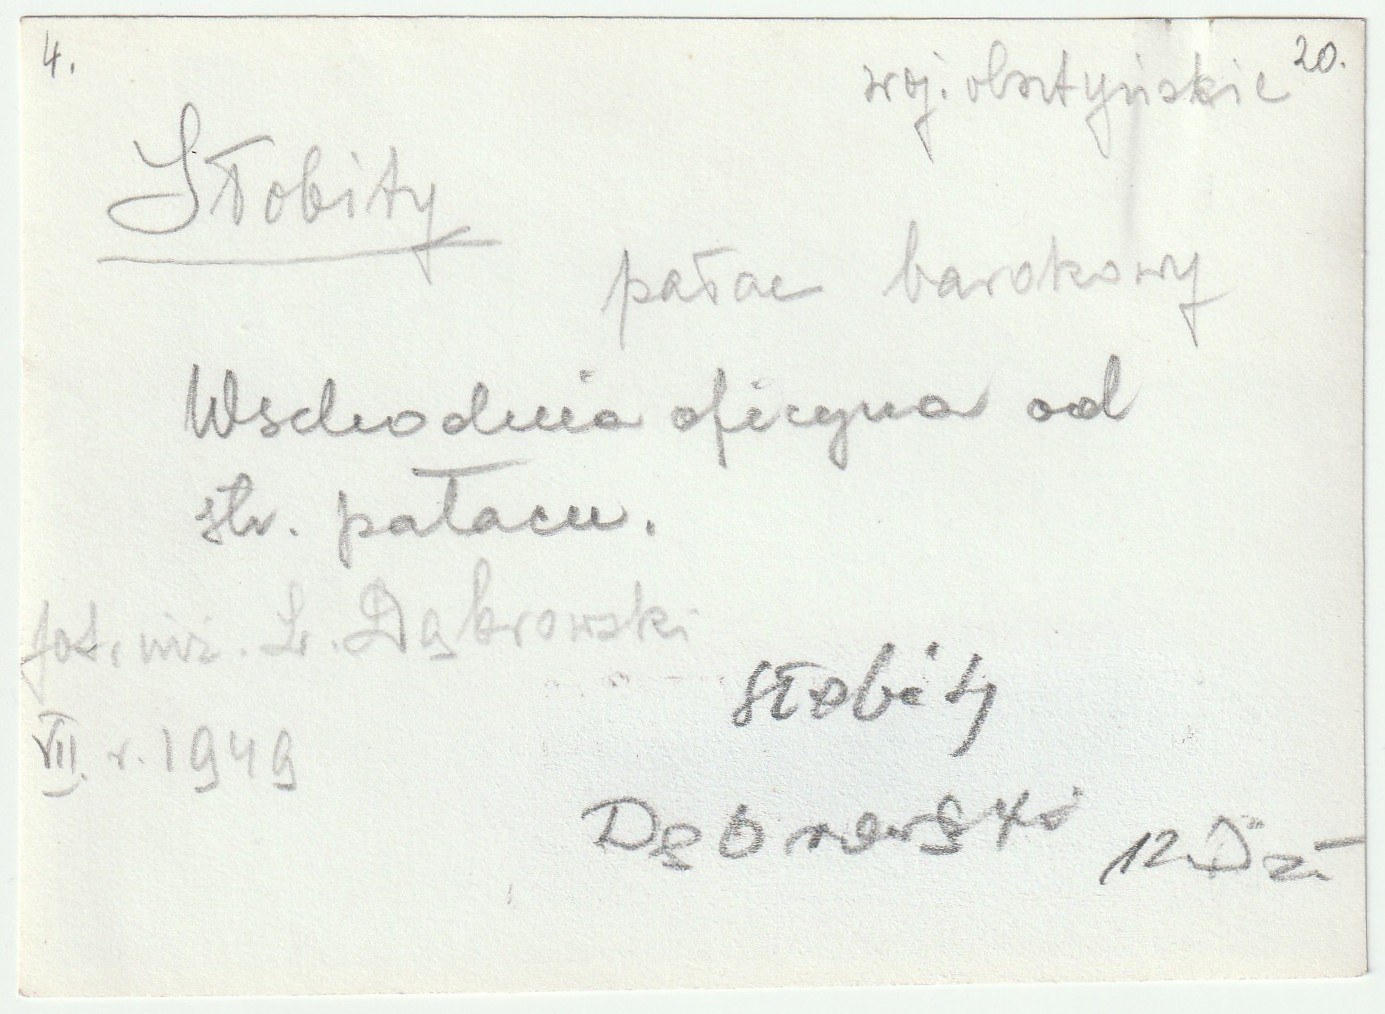 4.
20.
woj. olsztyńskie
Słobity
pałac barokowy
Wschodnia oficyna od
str. pałacu.
fot. inż. L. Dąbrowski
VII. r. 1949
Słobity
Dąbrowski